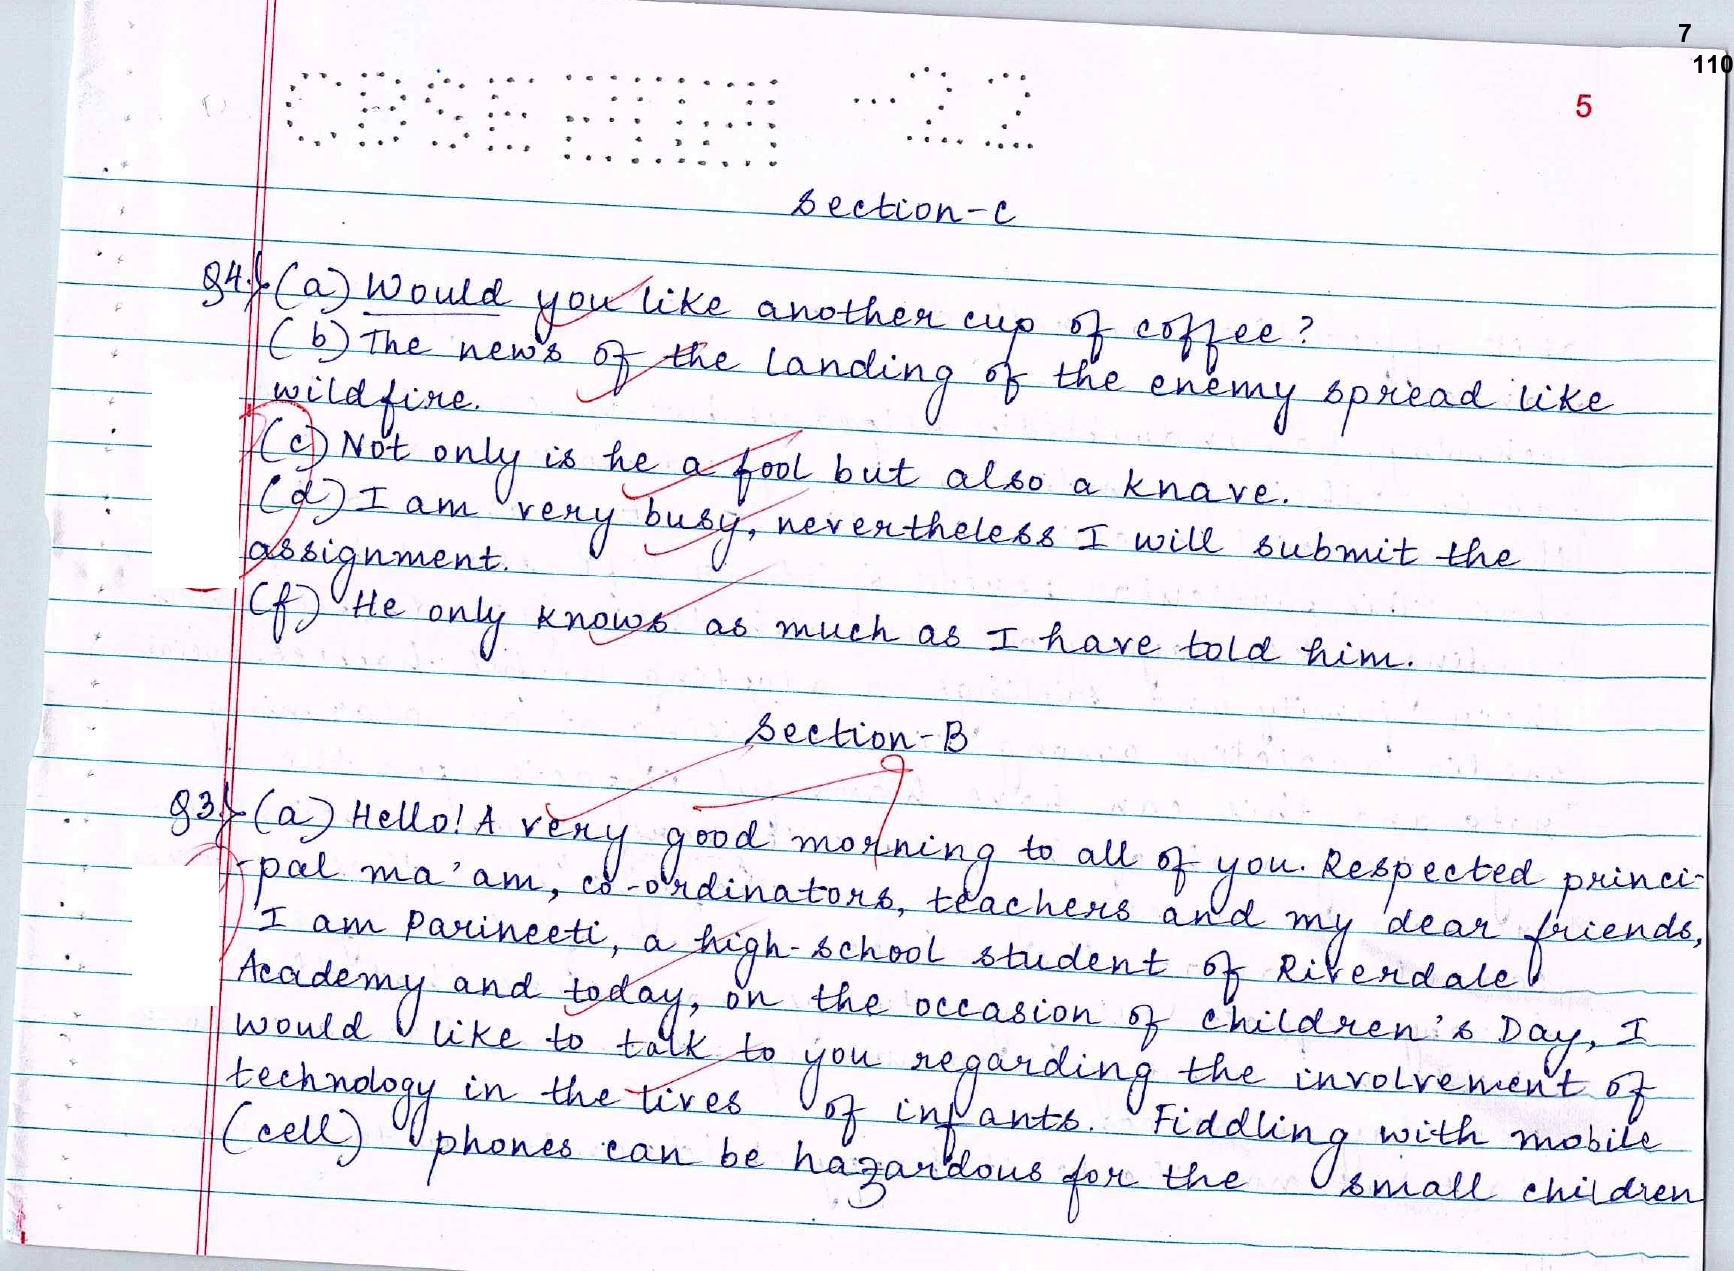 7
110
5
CBSE -22
Section-C
Q4.) (a) Would you like another cup of coffee?
(b) The news of the landing of the enemy spread like
wildfire.
(c) Not only is he a fool but also a knave.
(d) I am very busy, nevertheless I will submit the
assignment.
(f) He only knows as much as I have told him.
Section-B
Q3.) (a) Hello! A very good morning to all of you. Respected princi-
-pal ma'am, co-ordinators, teachers and my dear friends,
I am Parineeti, a high-school student of Riverdale
Academy and today, on the occasion of Children's Day, I
would like to talk to you regarding the involvement of
technology in the lives of infants. Fiddling with mobile
(cell) phones can be hazardous for the small children